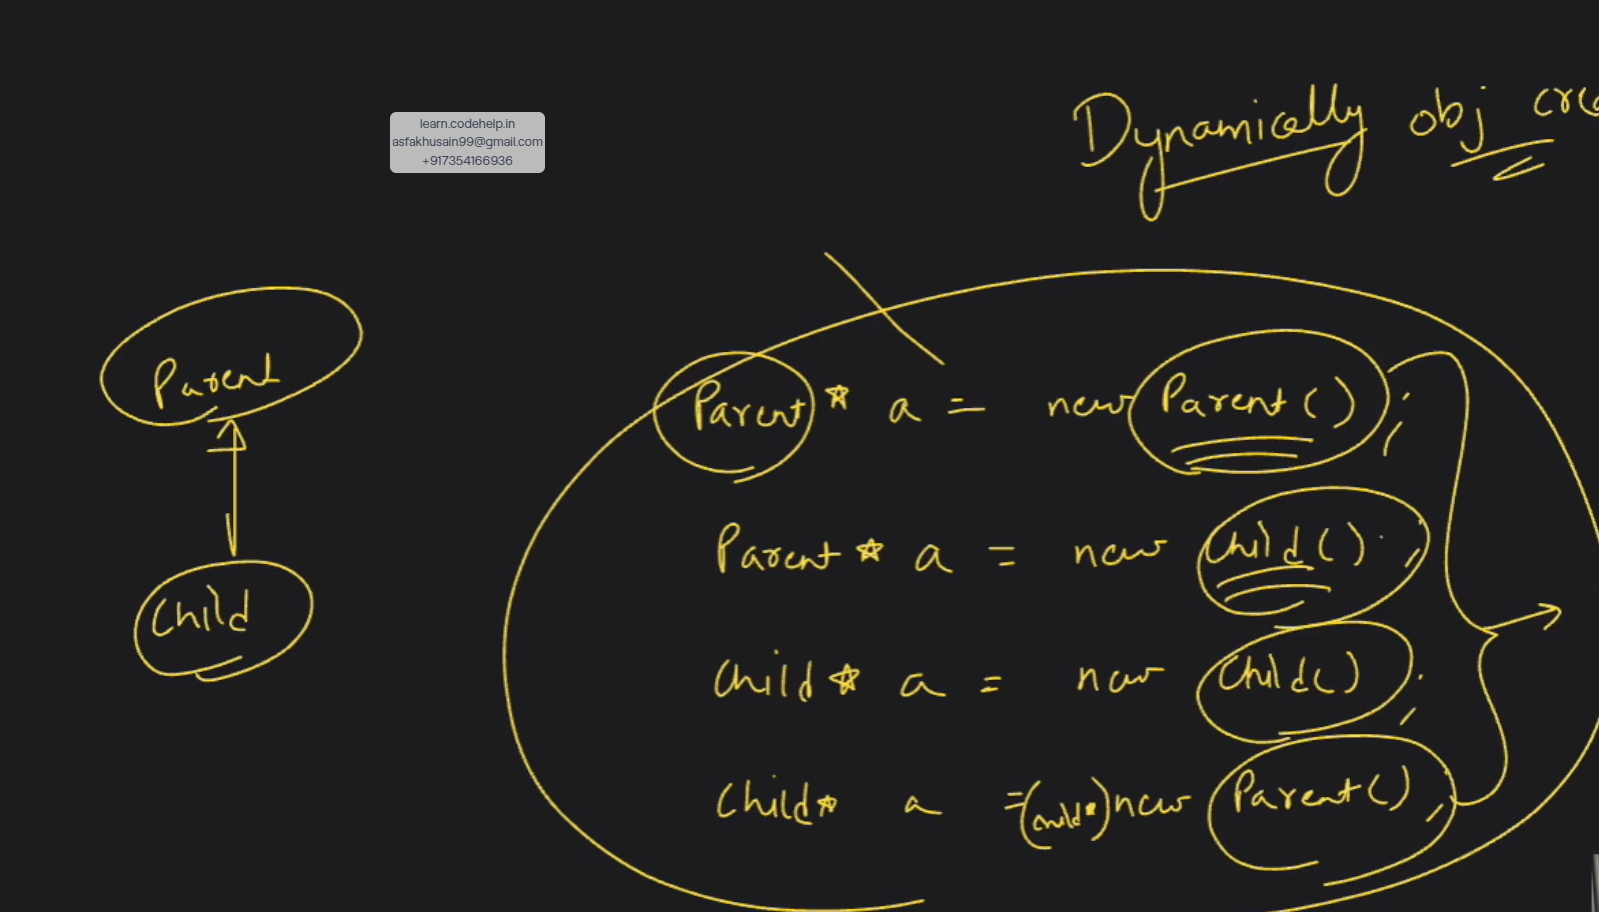 learn.codehelp.in
asfakhusain99@gmail.com
+917354166936
Dynamically obj cre
Parent
Child
Parent* a = new Parent();
Parent* a = new Child();
Child* a = new Child();
Child* a =(child*)new Parent();